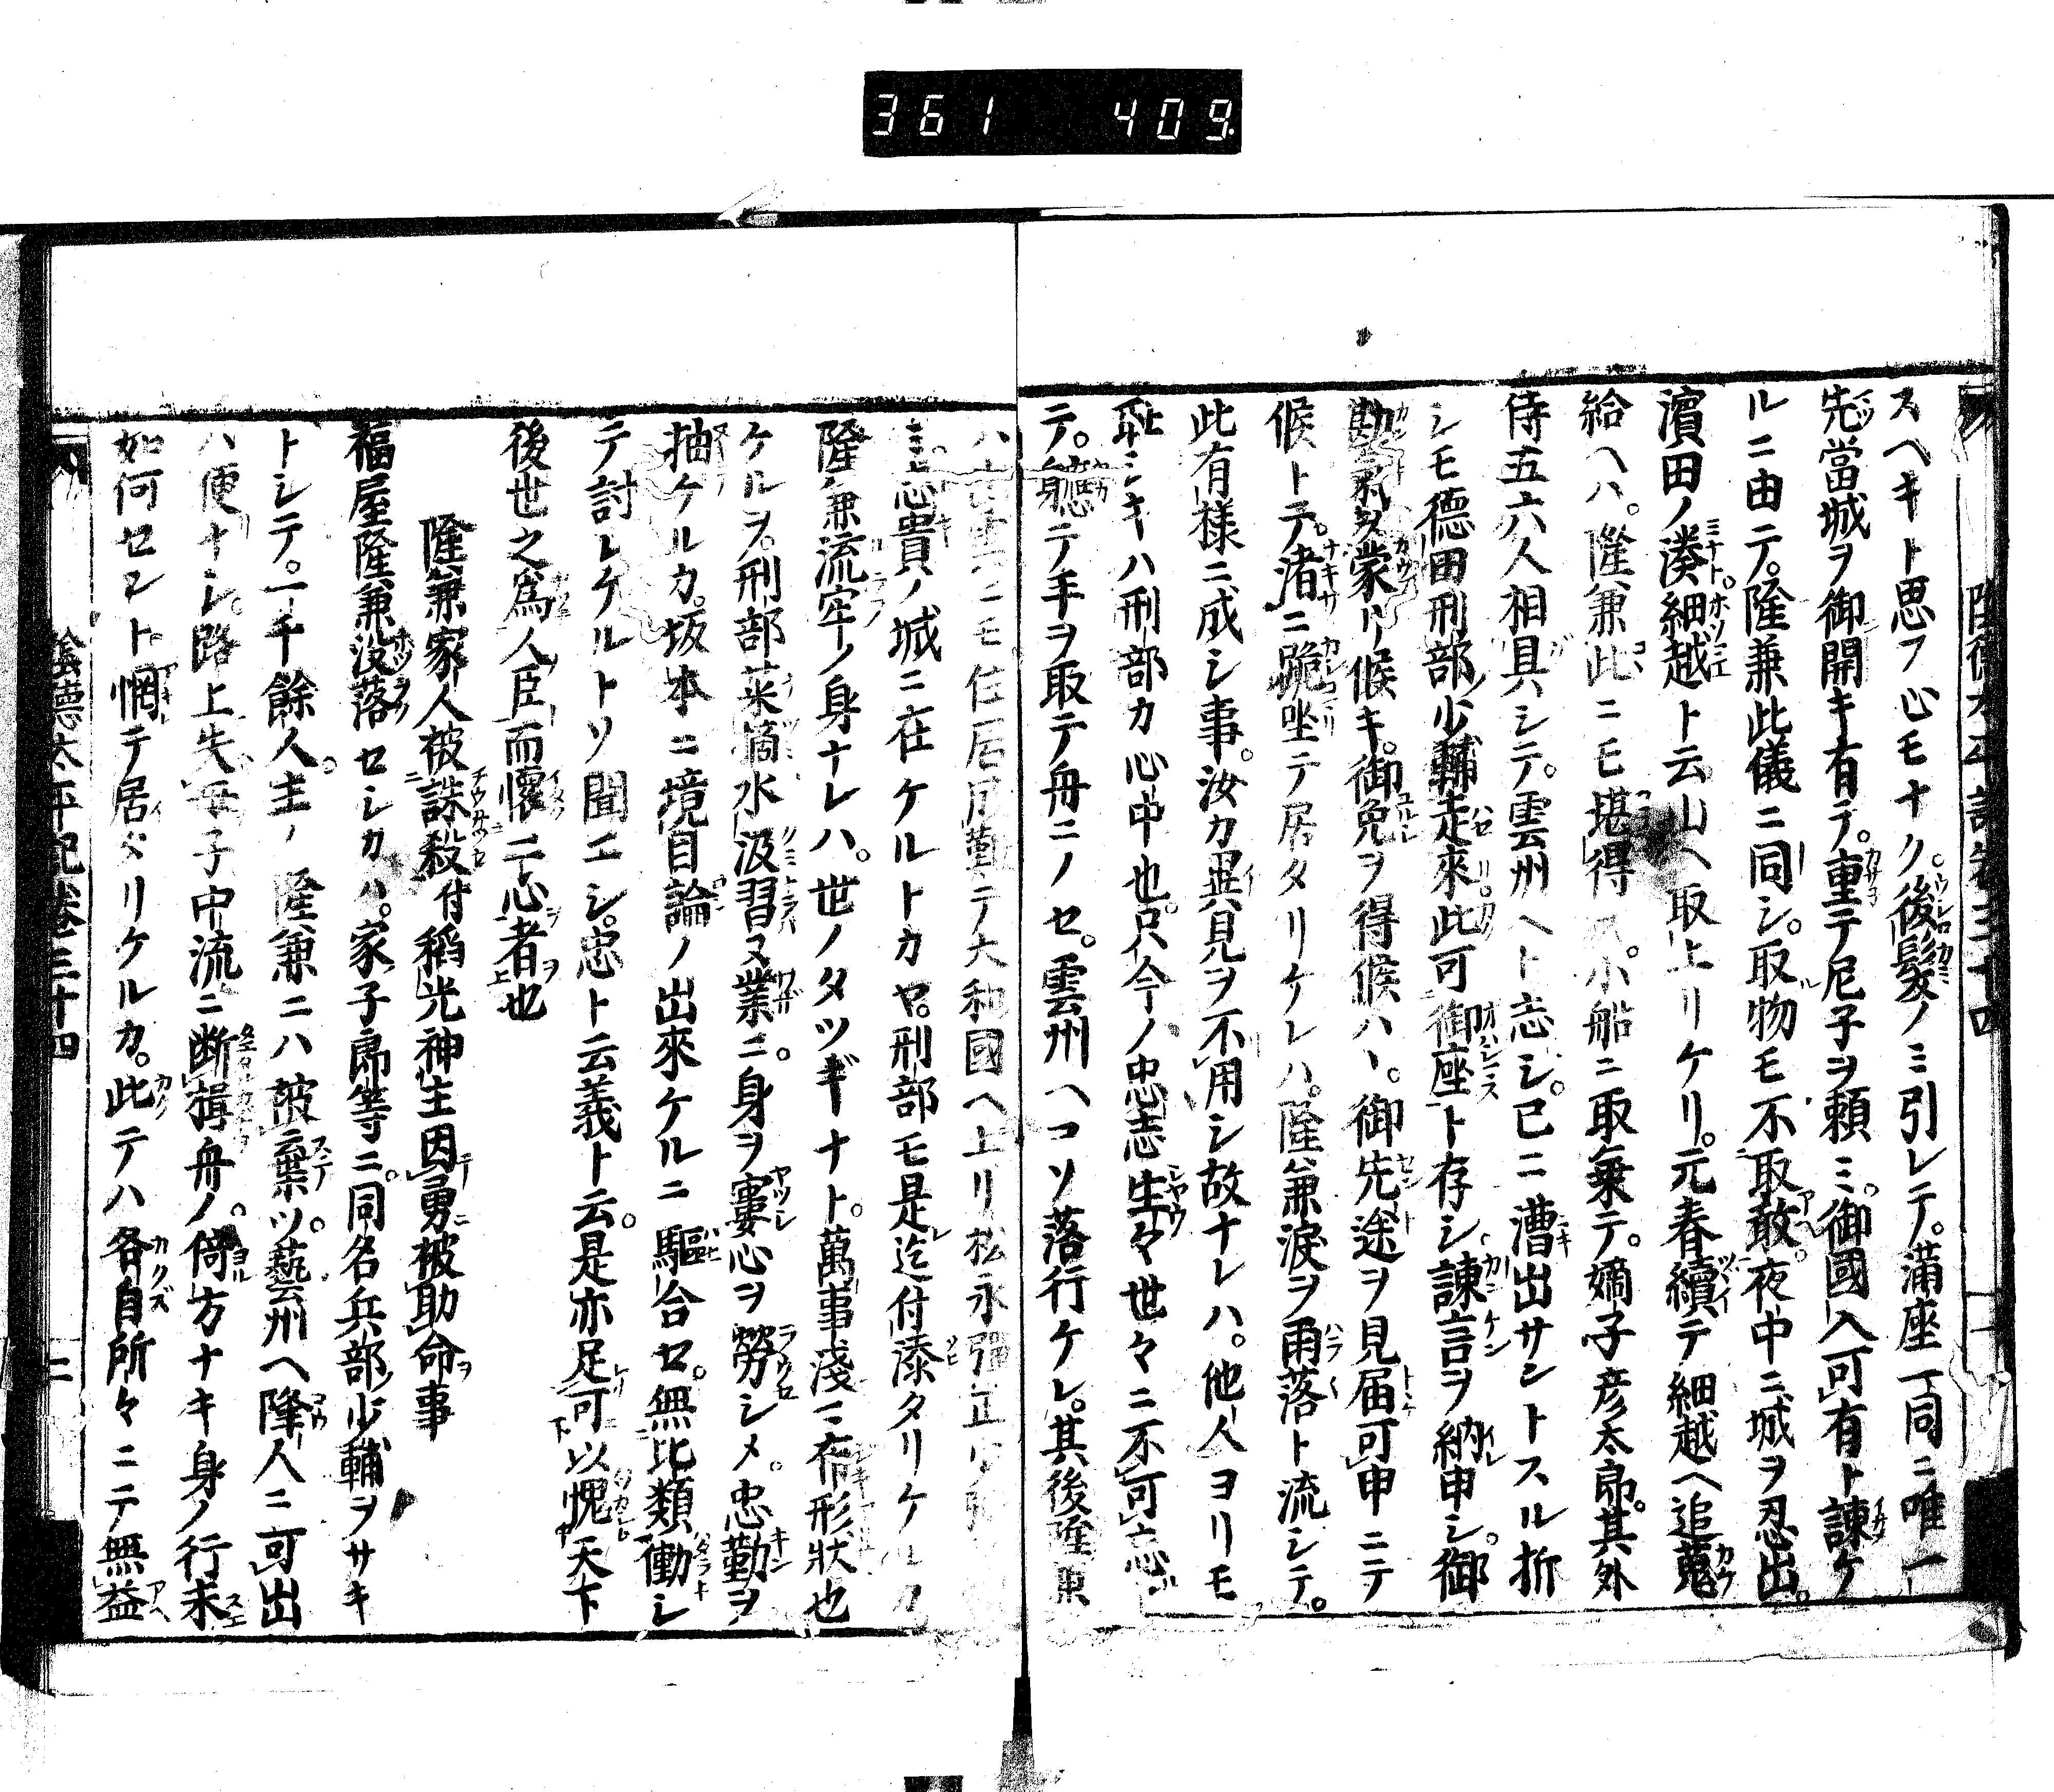 361 409
スヘキト思フ心モナク。後髪ノミ引レテ。満座一同ニ唯一
先當城ヲ御開キ有テ。重テ尼子ヲ頼ミ。御國入可有ト諫ケ
ルニ由テ。隆兼此儀ニ同シ。取物モ不取敢。夜中ニ城ヲ忍出。
濱田ノ湊細越ト云山ヘ取上リケリ。元春續テ細越ヘ追蒐
給ヘハ。隆兼此ニモ堪得ス。小船ニ取乗テ。嫡子彦太郎。其外
侍五六人相具シテ。雲州ヘト志シ。已ニ漕出サントスル折
シモ德田刑部少輔走來此可御座ト存シ諫言ヲ納申シ。御
勘氣ヲ蒙リ候キ。御免ヲ得候ハヽ。御先途ヲ見届可申ニテ
候トテ。渚ニ跪坐テ居タリケレハ。隆兼淚ヲ雨落ト流シテ。
此有樣ニ成シ事。汝カ異見ヲ不用シ故ナレハ。他人ヨリモ
恥シキハ刑部カ心中也。只今ノ忠志生々世々ニ不可忘
テ。軈テ手ヲ取テ舟ニノセ。雲州ヘコソ落行ケレ。其後隆兼
ハ雲州ニモ住居成難テ大和國ヘ上リ松永彈正
志貴ノ城ニ在ケルトカヤ。刑部モ是迄付添タリケルカ
隆兼流牢ノ身ナレハ。世ノタツギナト。萬事淺ミ布形狀也
ケルヲ。刑部菜摘水汲習ヌ業ニ。身ヲ窶心ヲ勞シメ。忠勤ヲ
抽ケルカ。坂本ニ境目論ノ出來ケルニ驅合セ。無比類働シ
テ討レケルトソ聞エシ。忠ト云義ト云。是亦足可以愧天下
後世之爲人臣而懷二心者也
隆兼家人被誅殺付稻光神主因勇被助命事
福屋隆兼沒落セシカハ。家子郎等ニ。同名兵部少輔ヲサキ
トシテ。一千餘人。主ノ隆兼ニハ被棄ツ。藝州ヘ降人ニ可出
ハ便ナシ。路上失母子中流ニ断楫舟ノ。倚方ナキ身ノ行末
如何セント惘テ居タリケルカ。此テハ各自所々ニテ無益
陰德太平記卷三十四 二